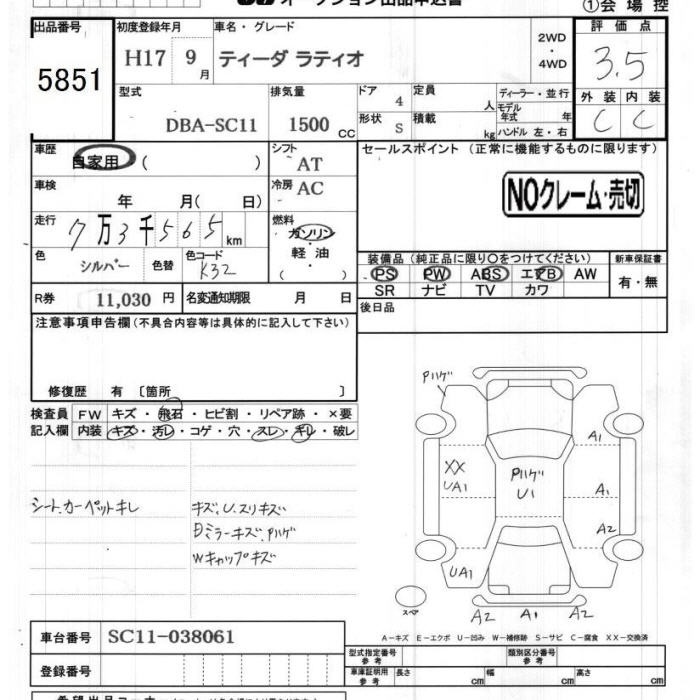 オークション出品申込書
①会場控
出品番号 初度登録年月 車名・グレード 2WD・4WD 評価点
5851 H17 9月 ティーダ ラティオ 3.5
型式 排気量 ドア 4 定員 人 ディーラー・並行 外装 内装
DBA-SC11 1500cc 形状 S 積載 kg モデル年式 年 ハンドル 左・右 C C
車歴 自家用 ( ) シフト AT セールスポイント (正常に機能するものに限ります)
車検 年 月( 日) 冷房 AC NOクレーム・売切
走行 7万3千565km 燃料 ガソリン・軽油・( )
色 シルバー 色替 色コード K32
装備品(純正品に限り○をつけてください) 新車保証書
PS PW ABS エアB AW 有・無
SR ナビ TV カワ
R券 11,030円 名変通知期限 月 日 後日品
注意事項申告欄(不具合内容等は具体的に記入して下さい)
修復歴 有 〔箇所 〕
検査員 FW キズ・飛石・ヒビ割・リペア跡・×要
記入欄 内装 キズ・汚レ・コゲ・穴・スレ・キレ・破レ
シート、カーペットキレ
キズ、U、スリキズ
Dミラーキズ、Pハゲ
Wキャップキズ
Pハゲ
A1
XX
UA1
Pハゲ
U1
A1
A2
UA1
スペア
A2 A1 A2
A-キズ E-エクボ U-凹み W-補修跡 S-サビ C-腐食 XX-交換済
車台番号 SC11-038061
型式指定番号 参考 類別区分番号 参考
登録番号 車庫証明用 参考 長さ cm 幅 cm 高さ cm